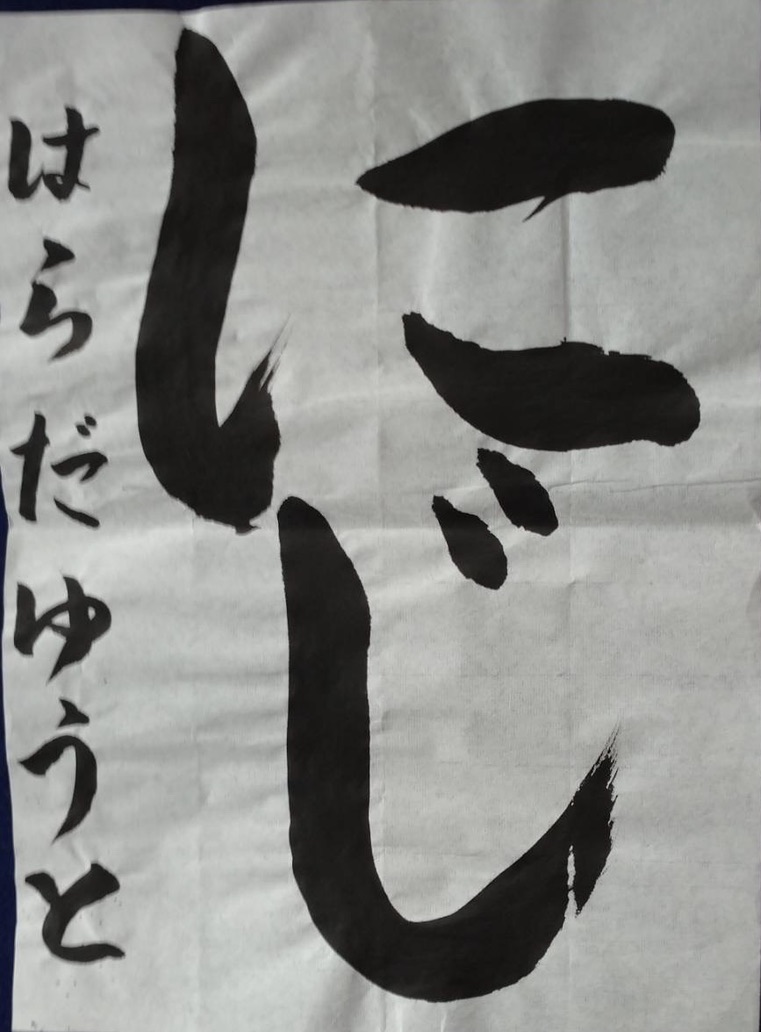 にじ
はらだゆうと